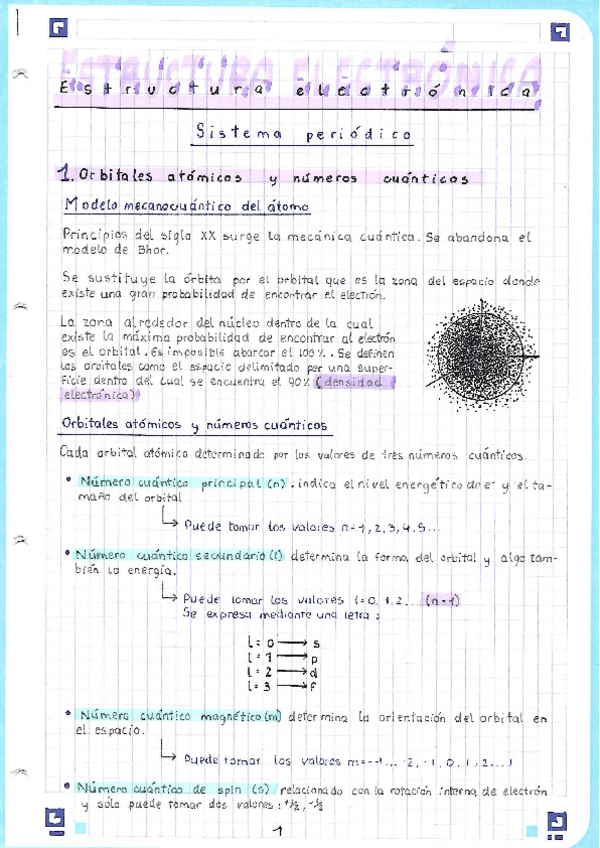 ESTRUCTURA ELECTRÓNICA
Estructura electrónica
Sistema periódico
1. Orbitales atómicos y números cuánticos
Modelo mecanocuántico del átomo
Principios del siglo XX surge la mecánica cuántica. Se abandona el
modelo de Bhor.
Se sustituye la órbita por el orbital que es la zona del espacio donde
existe una gran probabilidad de encontrar el electrón.
La zona alrededor del núcleo dentro de la cual
existe la máxima probabilidad de encontrar al electrón
es el orbital. Es imposible abarcar el 100%. Se definen
los orbitales como el espacio delimitado por una super-
ficie dentro del cual se encuentra el 90% (densidad
electrónica)
Orbitales atómicos y números cuánticos
Cada orbital atómico determinado por los valores de tres números cuánticos.
• Número cuántico principal (n). indica el nivel energético de e⁻ y el ta-
maño del orbital
↳ Puede tomar los valores n=1, 2, 3, 4, 5...
• Número cuántico secundario (l) determina la forma del orbital y algo tam-
bién la energía.
↳ Puede tomar los valores l=0, 1, 2... (n-1)
Se expresa mediante una letra:
l = 0 → s
l = 1 → p
l = 2 → d
l = 3 → f
• Número cuántico magnético (m) determina la orientación del orbital en
el espacio.
↳ Puede tomar los valores m=-l... -2, -1, 0, 1, 2...l
• Número cuántico de spin (s) relacionado con la rotación interna de electrón
y sólo puede tomar dos valores: +½, -½
1